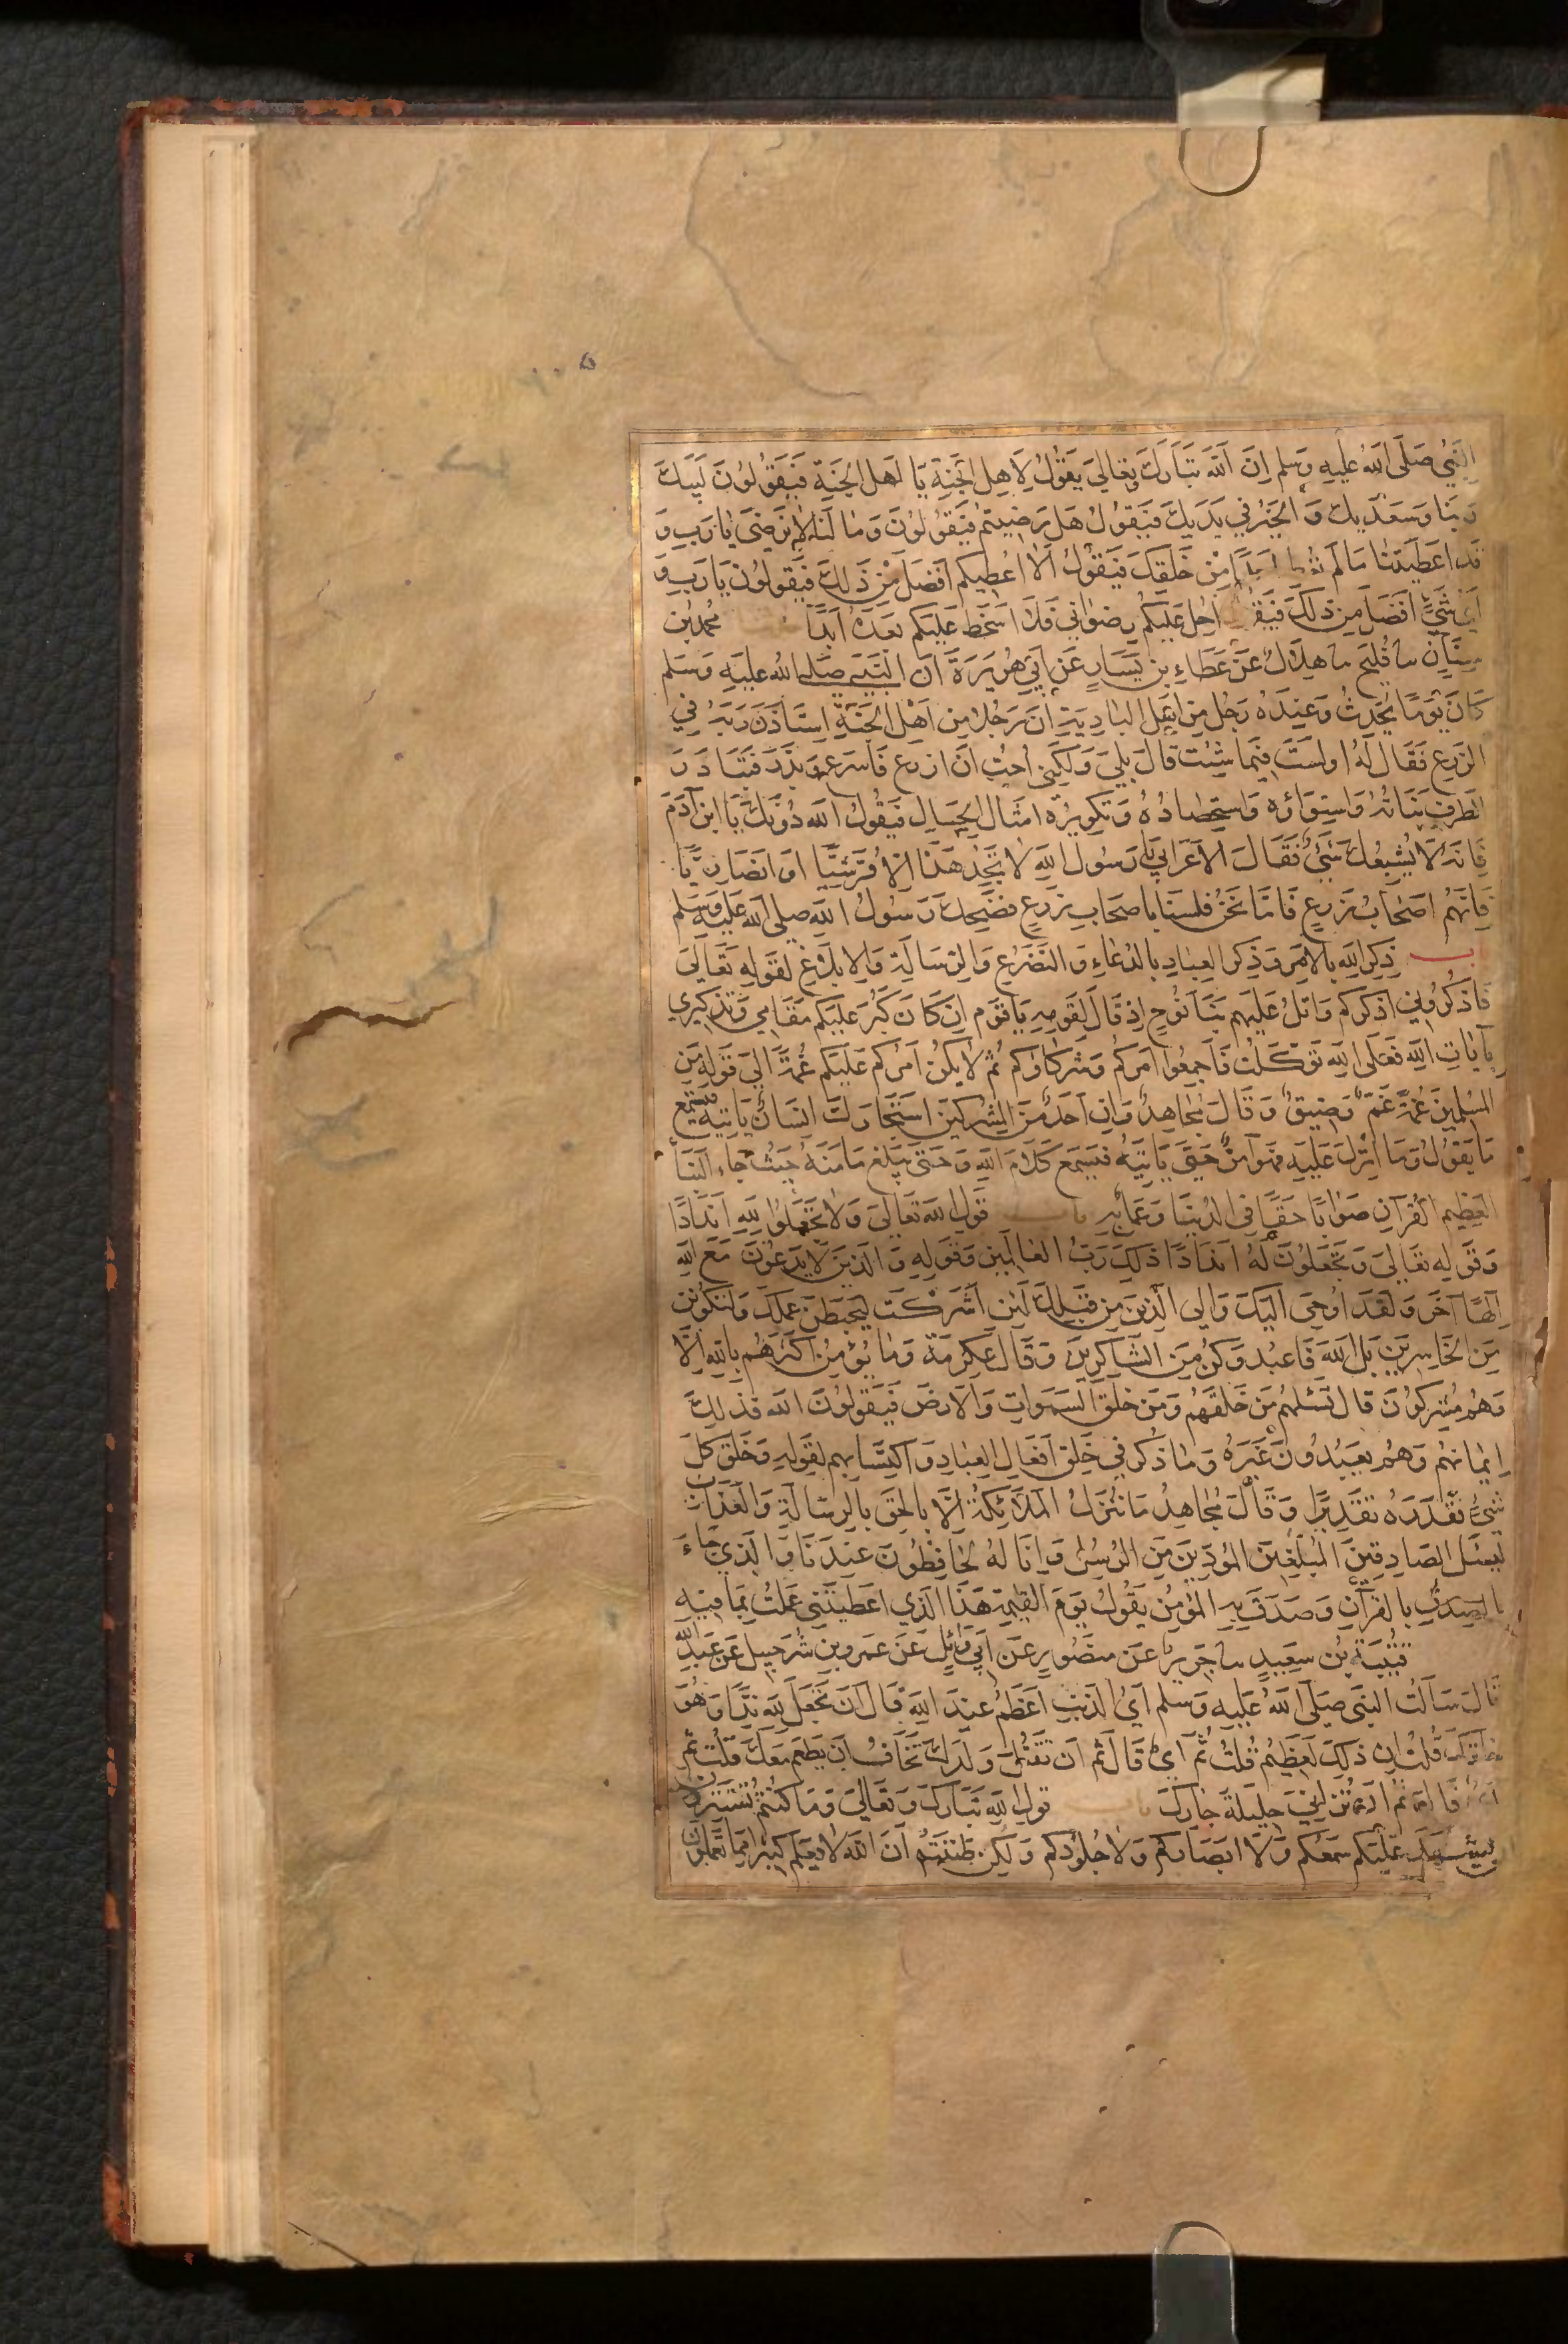 النَّبِيُّ صَلَّى اللهُ عَلَيهِ وَسَلم اِنَ اللهَ تَبَارَكَ وَتعَالىَ يَقُولُ لِاَهِلِ الْجَنةِ يَا اَهلَ الجَنَة فَيَقُولُونَ لَبَيكَ
رَبنا وَسَعدَيكَ وَالخَيرُ في يَدَيكَ فيَقوُلُ هَل رَضِيتمُ فيَقوُلوُنَ وَمَا لَنَا لاَ نَرضىَ يَا رَبِ وَ
قَد اعَطَيتَنا مَا لم تُعط اَحَدًا مِنْ خَلقِكَ فَيَقوُلُ اَلَا اُعطِيكم اَفضَلَ مِن ذَلِكَ فيَقولُون يَا رَبِ وَ
اَيُّ شَيءٍ اَفضَل مِن ذلكَ فَيَقُولُ اُحِلُ عَلَيكُم رِضوَاني فَلَا اَسخَط عَليَكم بَعدَهُ اَبَدًا محمد بن
سِنَانٍ سا فُليَح سا هِلَالُ عَن عَطَاءِ بنِ يَسَارٍ عَن اَبي هُرَيرَةَ اَن النَبيَ صَلى اللهُ عَليَهِ وَسَلم
كَانَ يَومًا يُحَدِثُ وَعِندَهُ رَجُل مِن اَهلِ البَادِيَةِ اَنَ رَجُلا مِن اَهْلِ الجَنَةِ استَاذَنَ رَبَهُ في
الزَرع فَقَالَ لَهُ اَوَلستَ فيمَا شِئت قالَ بَلىَ وَلكِني اُحِبُ اَن ازرَع فَاسَرع وَبَذَرَ فتَبَادَرَ
الطَرفَ نَبَاتُهُ وَاستِوَاؤه وَاستِحصَادُهُ وَتكوِيرُهُ امثَالَ الجِبَالِ فيَقُولُ اللهُ دُونَكَ يَا ابنَ آدَمَ
فَانهُ لَا يُشبِعُكَ شَيءٌ فَقَالَ الاَعرَابي يَا رَسُولَ اللهِ لاَ تَجِدُ هَذَا اِلاَ قُرَشِيًا اَو انَصَارِيًا
فاِنهُم اَصحَابُ زَرعٍ فَامَّا نَحنُ فلسنَا باصحَابِ زَرعٍ فضَحِكَ رَسُولُ اللهِ صَلى اللهُ عَليه وَسَلم
باب ذِكرِ اللهِ بالاَمرِ وَذِكرِ العِبَادِ بالدُعَاءِ وَالتَضَرُعِ وَالرِسَالَةِ وَالاِبلاَغِ لقَولهِ تَعَالىَ
فَاذكُرُونِي اَذكُركم وَاتلُ عَليَهم نَبَأَ نوُحٍ اِذ قَالَ لِقَومِهِ يَا قَوم اِن كَانَ كَبُرَ عَليَكم مَقَامي وَتذكِيري
بآيَاتِ اللهِ فَعَلَى اللهِ تَوَكَلتُ فَاجمِعُوا امرَكُم وَشُرَكَاؤكم ثُم لاَ يكُن اَمرُكم عَليَكم غُمَّةً اِلىَ قَولهِ مِنَ
المُسلِمينَ غُمَّةً غَمٌ وَضِيقٌ وَقَالَ مُجاهِدٌ وَاِن اَحَدٌ مِنَ المُشركِينَ استجَارَكَ اِنسَانٌ يَاتِيهِ فيَستَمِعُ
مَا يَقوُلُ وَمَا اُنزِلَ عَليَهِ فهُوَ آمِنٌ حَتىَ يَاتِيَهُ فيَسمَعَ كَلاَمَ اللهِ وَحَتىَ يَبلغَ مَامَنَهُ حَيثُ جَاءَ النَبَأُ
العَظِيم القُرآنِ صَوَابًا حَقًا في الدُنيَا وَعَمَلٌ بهِ باب قولِ اللهِ تَعَالىَ وَلاَ تَجعَلوُا للهِ اَندَادًا
وَقَولهِ تعَالىَ وَتَجعَلوُنَ لَهُ اَندَادًا ذلكَ رَبُ العَالَمِينَ وَقَولهِ وَالذينَ لاَ يَدعُونَ مَعَ اللهِ
اِلهًا آخَرَ وَلَقَد اُوحِيَ اِليَكَ وَاِلى الذِينَ مِن قَبلِكَ لَئِن اَشرَكتَ ليَحبَطَنَ عَمَلُكَ وَلتَكوُنَن
مِنَ الخَاسِرينَ بَلِ اللهَ فَاعبُد وَكُن مِنَ الشَاكِرِينَ وَقَالَ عِكرِمَة وَمَا يُؤمِنُ اَكثَرُهُم بِاللهِ اِلَّا
وَهُم مُشرِكوُنَ قالَ تَسئَلهُم مَن خَلقَهُم وَمَن خَلَقَ السَمَوَاتِ وَالاَرضَ فَيَقوُلُونَ اللهُ فذلِكَ
اِيمَانهُم وَهُم يَعبُدُونَ غَيرَهُ وَمَا ذُكِرَ في خَلقِ اَفعَالِ العِبَادِ وَاكتِسَابِهم لقَولهِ وَخَلَقَ كلَ
شَيءٍ فقَدَرَهُ تقَدِيرًا وَقَالَ مُجاهِدُ مَا تُنَزَلُ المَلاَئِكَةُ اِلَّا بالحَقِ بالرِسَالَةِ وَالعَذَابِ
ليَسئَلَ الصَادِقِينَ المُبَلِغِينَ المؤدِينَ مِنَ الرُسُلِ وَاِنَا لَهُ لحَافِظُونَ عِندَنَا وَالذِي جَاءَ
بالصِدقِ بالقُرآنِ وَصَدَقَ بهِ المُؤمِنُ يَقُولُ يَومَ القِيمَةِ هَذَا الَذي اَعطَيتَني عَمِلتُ بمَا فيهِ
قتُيبَةُ بنُ سَعِيدٍ سا جَرير عَن مَنصُورٍ عَن اَبي وَائِلٍ عَن عَمرِو بنِ شُرَحبيلَ عَن عَبدِ اللهِ
قَالَ سَالتُ النبَيَ صَلى اللهُ عَليَهِ وَسَلم اَيُ الذَنبِ اَعظَمُ عِندَ اللهِ قَالَ اَن تَجعَلَ للهِ نِدًّا وَهُوَ
خَلَقَكَ قُلتُ اِنَ ذلِكَ لَعَظِيُم قُلتُ ثُمَّ اَيُّ قَالَ ثُم اَن تَقتُلَ وَلدَكَ تَخَافُ اَن يَطعَمَ مَعَكَ قُلتُ ثُم
اَيُّ قَالَ ثُم اَن تُزَانِيَ حِليلةَ جَارِكَ باب قولِ اللهِ تَبَارَكَ وَتعَالىَ وَمَا كُنتُم تَستَتِرُونَ
اَن يَشهَدَ عَليَكم سَمعُكم وَلَا اَبصَارُكم وَلاَ جُلوُدُكم وَلكِن ظَنَنتُم اَنَ اللهَ لاَ يَعلَمُ كَثيرًا مِمَا تَعمَلوُنَ